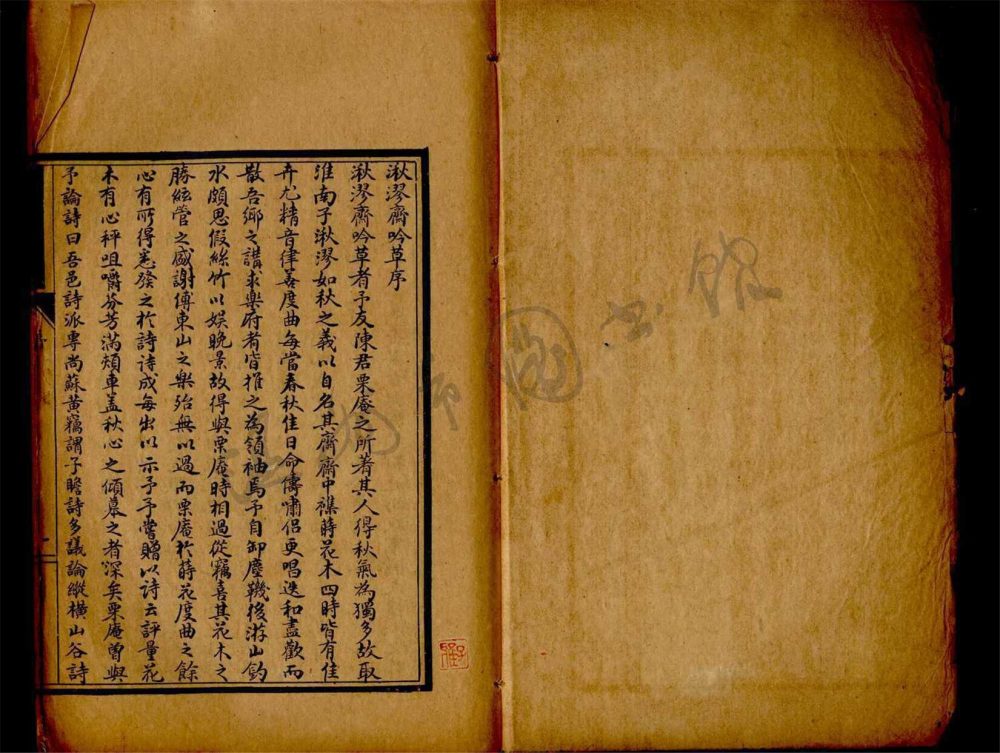 湫漻齋吟草序
湫漻齋吟草者予友陳君栗庵之所著其人得秋氣為獨多故取
淮南子湫漻如秋之義以自名其齋齋中襍蒔花木四時皆有佳
卉尤精音律善度曲每當春秋佳日命儔嘯侶更唱迭和盡歡而
散吾鄉之講求樂府者皆推之為領袖焉予自卸塵鞿後游山釣
水頗思假絲竹以娛晚景故得與栗庵時相過從竊喜其花木之
勝絃管之盛謝傅東山之樂殆無以過而栗庵於蒔花度曲之餘
心有所得悉發之於詩詩成每出以示予予嘗贈以詩云評量花
木有心秤咀嚼芬芳滿頰車蓋秋心之傾慕之者深矣栗庵曾與
予論詩曰吾邑詩派專尚蘇黃竊謂子瞻詩多議論縱橫山谷詩